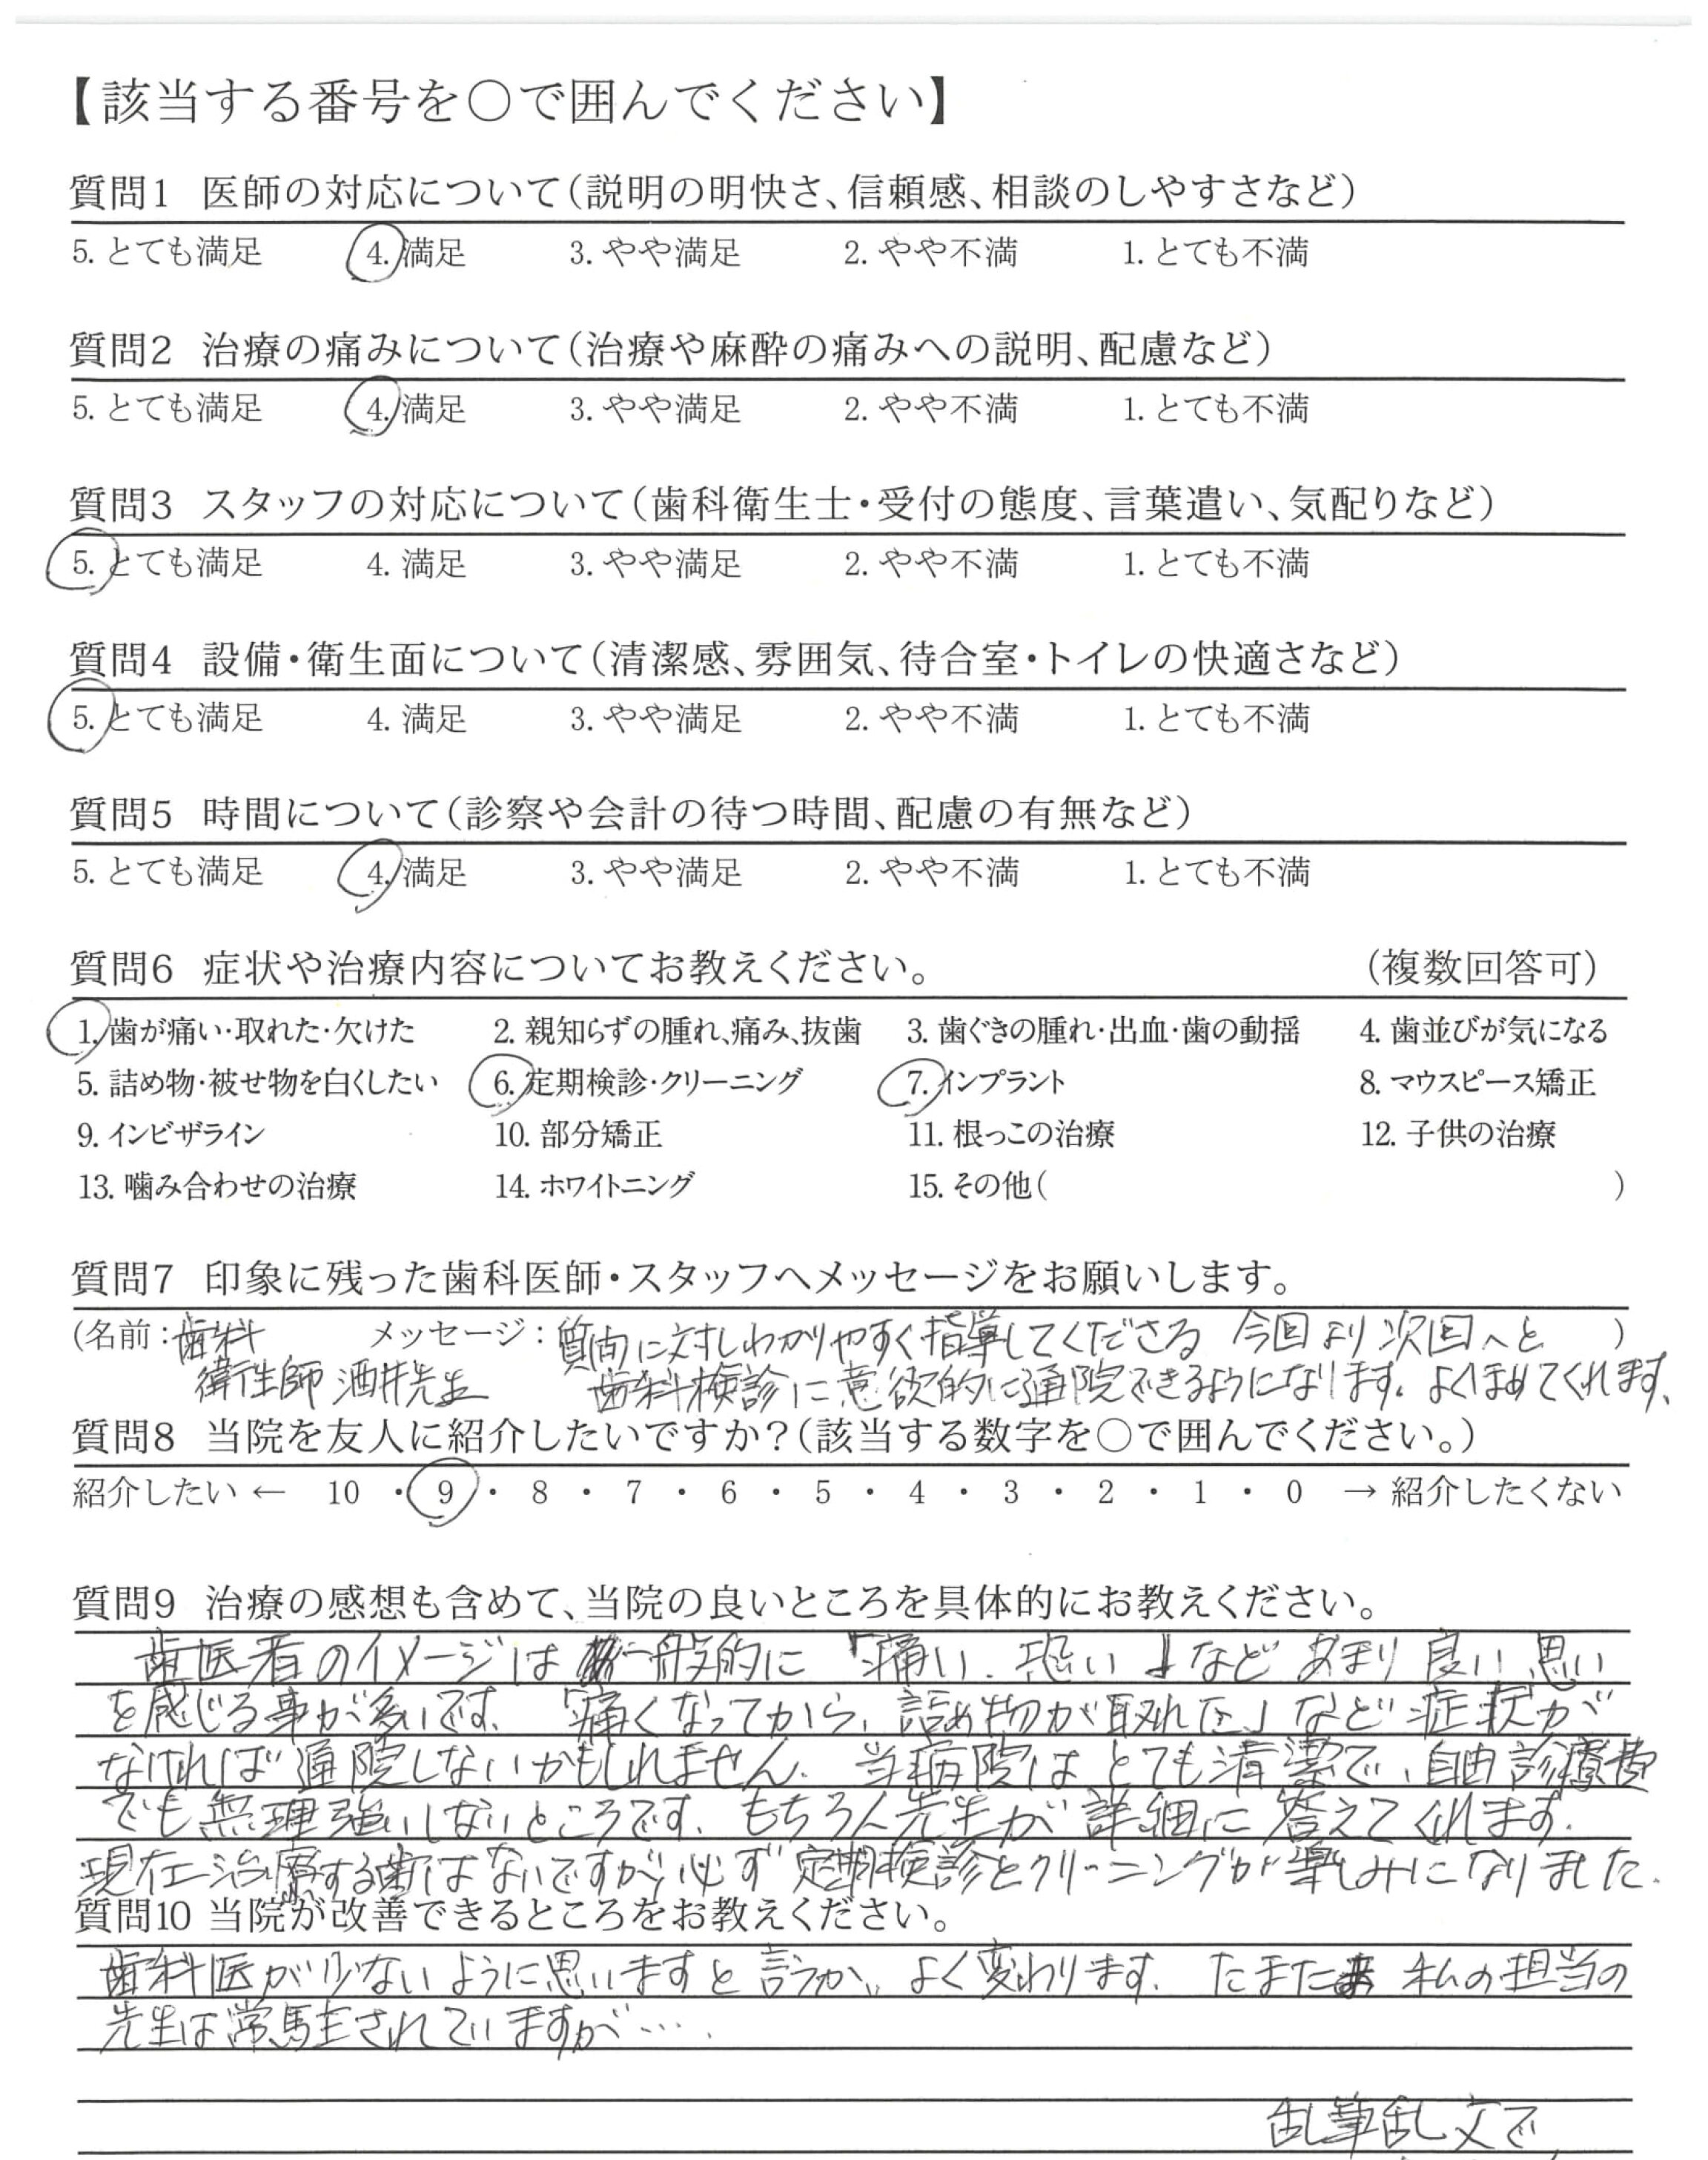 【該当する番号を○で囲んでください】
質問1 医師の対応について(説明の明快さ、信頼感、相談のしやすさなど)
5. とても満足 4. 満足 3. やや満足 2. やや不満 1. とても不満
質問2 治療の痛みについて(治療や麻酔の痛みへの説明、配慮など)
5. とても満足 4. 満足 3. やや満足 2. やや不満 1. とても不満
質問3 スタッフの対応について(歯科衛生士・受付の態度、言葉遣い、気配りなど)
5. とても満足 4. 満足 3. やや満足 2. やや不満 1. とても不満
質問4 設備・衛生面について(清潔感、雰囲気、待合室・トイレの快適さなど)
5. とても満足 4. 満足 3. やや満足 2. やや不満 1. とても不満
質問5 時間について(診察や会計の待つ時間、配慮の有無など)
5. とても満足 4. 満足 3. やや満足 2. やや不満 1. とても不満
質問6 症状や治療内容についてお教えください。 (複数回答可)
1. 歯が痛い・取れた・欠けた 2. 親知らずの腫れ、痛み、抜歯 3. 歯ぐきの腫れ・出血・歯の動揺 4. 歯並びが気になる
5. 詰め物・被せ物を白くしたい 6. 定期検診・クリーニング 7. インプラント 8. マウスピース矯正
9. インビザライン 10. 部分矯正 11. 根っこの治療 12. 子供の治療
13. 噛み合わせの治療 14. ホワイトニング 15. その他( )
質問7 印象に残った歯科医師・スタッフへメッセージをお願いします。
(名前:歯科 メッセージ:質問に対しわかりやすく指導してくださる 今回より次回へと )
衛生師 酒井先生 歯科検診に意欲的に通院できるようになります。よくほめてくれます、
質問8 当院を友人に紹介したいですか?(該当する数字を○で囲んでください。)
紹介したい ← 10 ・ 9 ・ 8 ・ 7 ・ 6 ・ 5 ・ 4 ・ 3 ・ 2 ・ 1 ・ 0 → 紹介したくない
質問9 治療の感想も含めて、当院の良いところを具体的にお教えください。
歯医者のイメージは 一般的に 「痛い. 恐い」など あまり 良い 思い
を感じる事が多いです. 「痛くなってから, 詰め物が取れた」など 症状が
なければ 通院しないかもしれません. 当病院は とても清潔で, 自由診療費
でも無理強いしないところです. もちろん先生が 詳細に 答えてくれます.
現在治療する歯はないですが 必ず 定期検診とクリーニングが 楽しみになりました.
質問10 当院が改善できるところをお教えください。
歯科医が少ないように思いますと 言うか, よく変わります. たまたま 私の担当の
先生は常駐されていますが….
乱筆乱文で